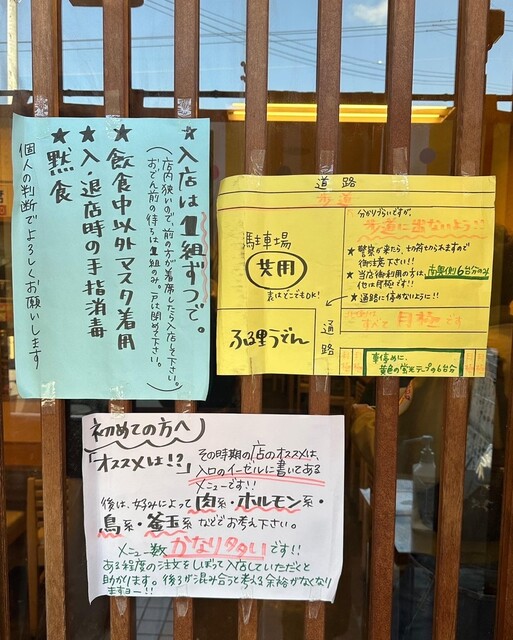 ★入店は1組ずつで。
(店内狭いので、前の方が着席したら入店して下さい。
おでん前の待ちは1組のみ。戸は閉めて下さい。)
★飲食中以外マスク着用
★入・退店時の手指消毒
★黙食
個人の判断でよろしくお願いします
道路
歩道
駐車場
共用
表はどこでもOK!
ふる里うどん
通路
分かりづらいですが、
歩道に出ないよう!!
★警察が来たら、せの
御注意下さい!!
★当店御利用の方は、南奥側6台分のみ
他は月極です!!
★通路に停めないように!!
すべて月極です
車停めに、
黄色の蛍光テープの6台分
初めての方へ
「オススメは!?」
その時期の店のオススメは、
入口のイーゼルに書いてある
メニューです!!
後は、好みによって肉系・ホルモン系・
鳥系・釜玉系などでお考え下さい。
メニュー数かなり多いです!!
ある程度の注文をしぼって入店していただくと
助かります。後ろが混み合うと考える余裕がなくなり
ますョー!!